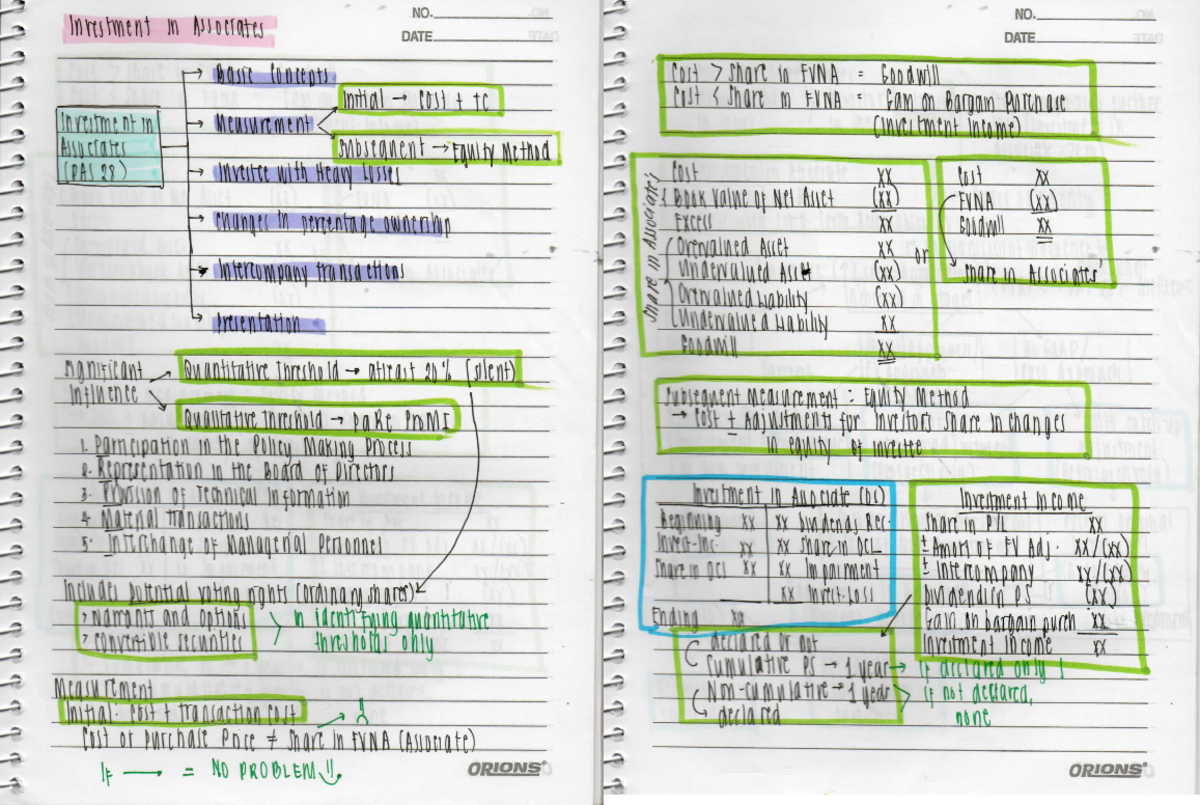 NO.
DATE
Investment in Associates
Basic Concepts
Initial → cost + TC
Investment in
Associates
(PAS 28)
Measurement
Subsequent → Equity Method
Investee with Heavy Losses
Changes in percentage ownership
Intercompany Transactions
Presentation
Significant
Influence
Quantitative Threshold → atleast 20% (silent)
Qualitative Threshold → PaRe PrMI
1. Participation in the Policy Making Process
2. Representation in the Board of Directors
3. Provision of Technical Information
4. Material Transactions
5. Interchange of Managerial Personnel
Includes potential voting rights (ordinary shares)
> Warrants and options
> convertible securities
in identifying quantitative
thresholds only
Measurement
Initial: Cost + transaction cost
Cost or Purchase Price ≠ Share in FVNA (Associate)
If → = NO PROBLEM!!
ORIONS
NO.
DATE
Cost > Share in FVNA = Goodwill
Cost < Share in FVNA = Gain on Bargain Purchase
(Investment Income)
Share in Associate's
Cost xx
Book Value of Net Asset (xx)
Excess xx
Overvalued Asset xx
Undervalued Asset (xx)
Overvalued Liability (xx)
Undervalued Liability xx
Goodwill xx
or
Cost xx
FVNA (xx)
Goodwill xx
Share in Associates'
Subsequent Measurement : Equity Method
→ Cost ± Adjustments for Investors Share in changes
in equity of investee
Investment in Associate (BS)
Beginning xx xx Dividends Rec.
Invest. Inc. xx xx Share in OCL
Share in OCI xx xx Impairment
xx Invest. Loss
Ending xx
Investment Income
Share in P/L xx
± Amort of FV Adj. xx/(xx)
± Intercompany xx/(xx)
Dividends in PS (xx)
Gain on bargain purch xx
Investment Income xx
declared or not
Cumulative PS → 1 year → If declared only 1
Non-cumulative → 1 year > If not declared,
declared none
ORIONS